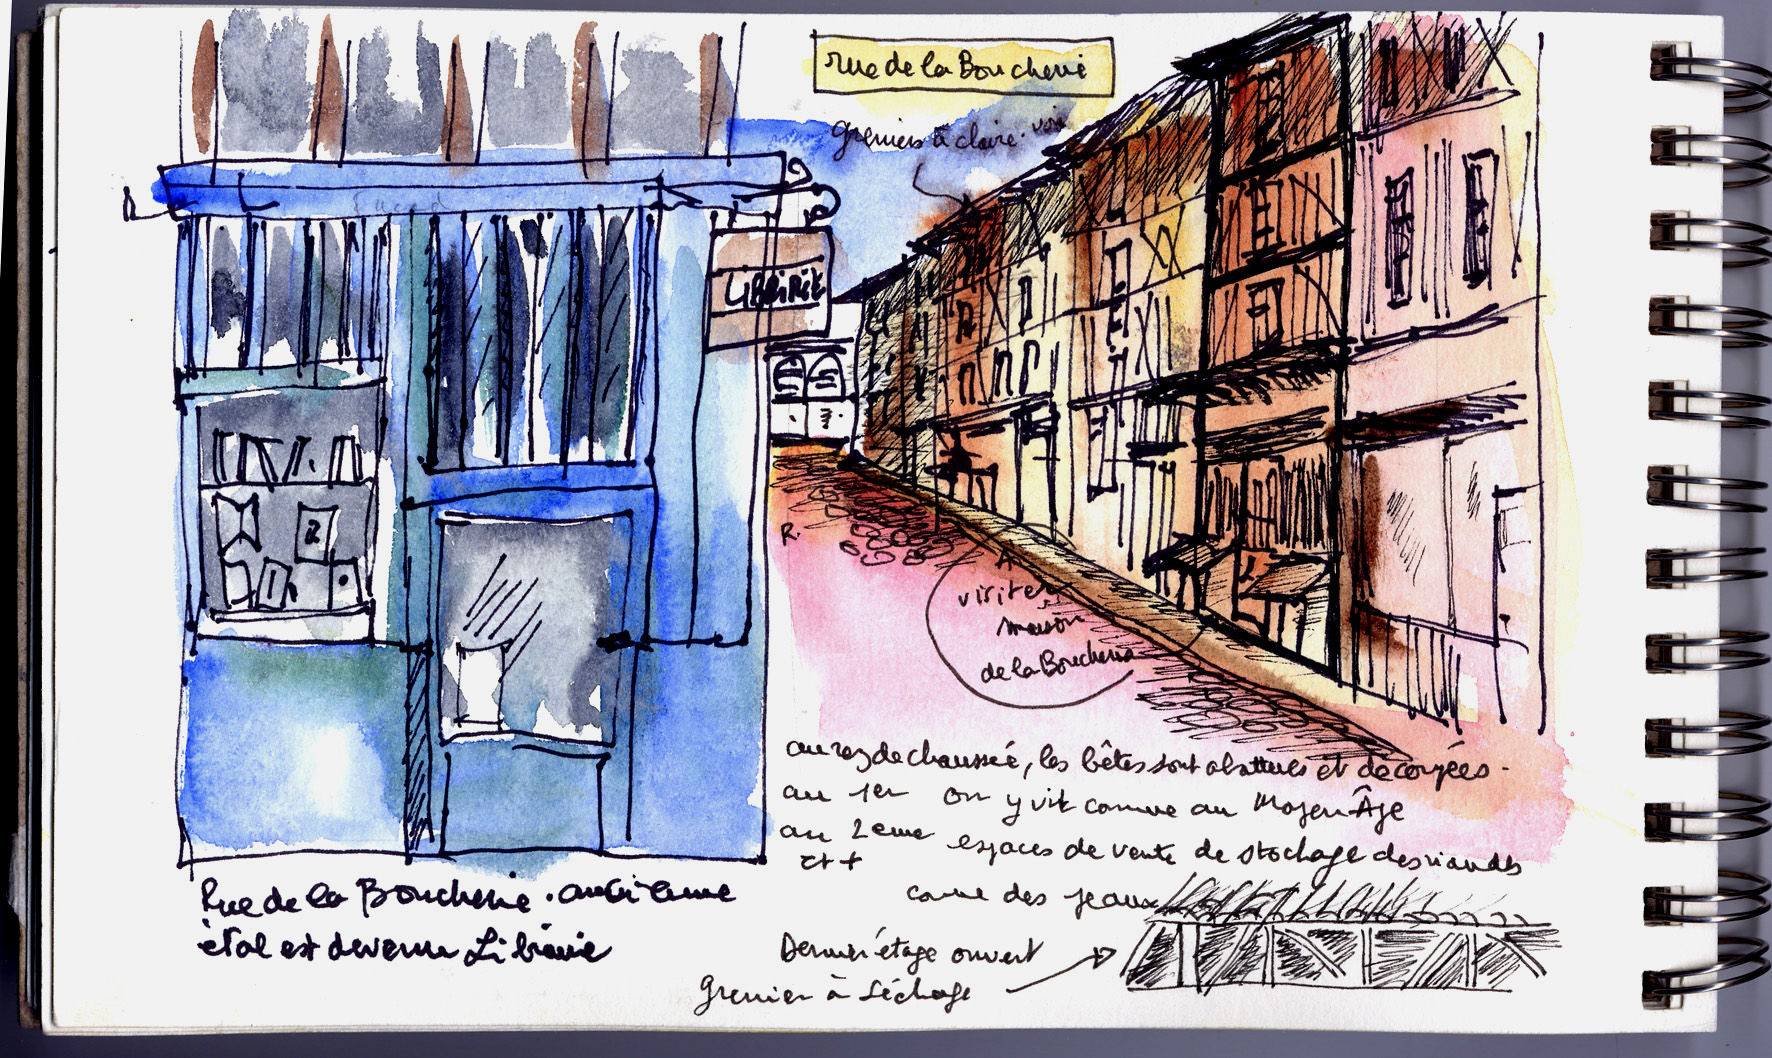 rue de la Boucherie
greniers à claire-voie
LIBRIRIE
R.
A
visiter
maison
de la Boucherie
au rez de chaussée, les bêtes sont abattues et découpées.
au 1er on y vit comme au Moyen-Âge
au 2eme espaces de vente de stockage des viandes
et + comme des peaux
Dernier étage ouvert
grenier à séchage
Rue de la Boucherie. ancienne
étal est devenu Librairie